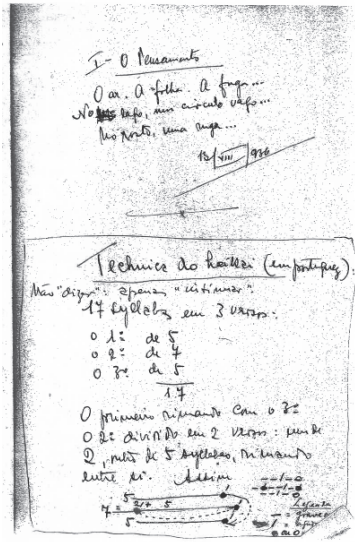 I - O Pensamento
O ar. A folha. A fuga...
No lago, um circulo vago...
No rosto, uma ruga...
13/VIII/936
Technica do haikai (em portuguez):
Não "dizer": apenas "insinuar".
17 syllabas em 3 versos:
o 1º de 5
o 2º de 7
o 3º de 5
17
O primeiro rimando com o 3º
O 2º dividido em 2 versos: um de
2, outro de 5 syllabas, rimando
entre si. Assim
5
7 = 2 + 5
5
Legenda